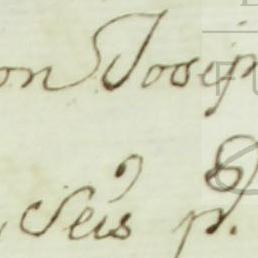 on Josep
Seis p.